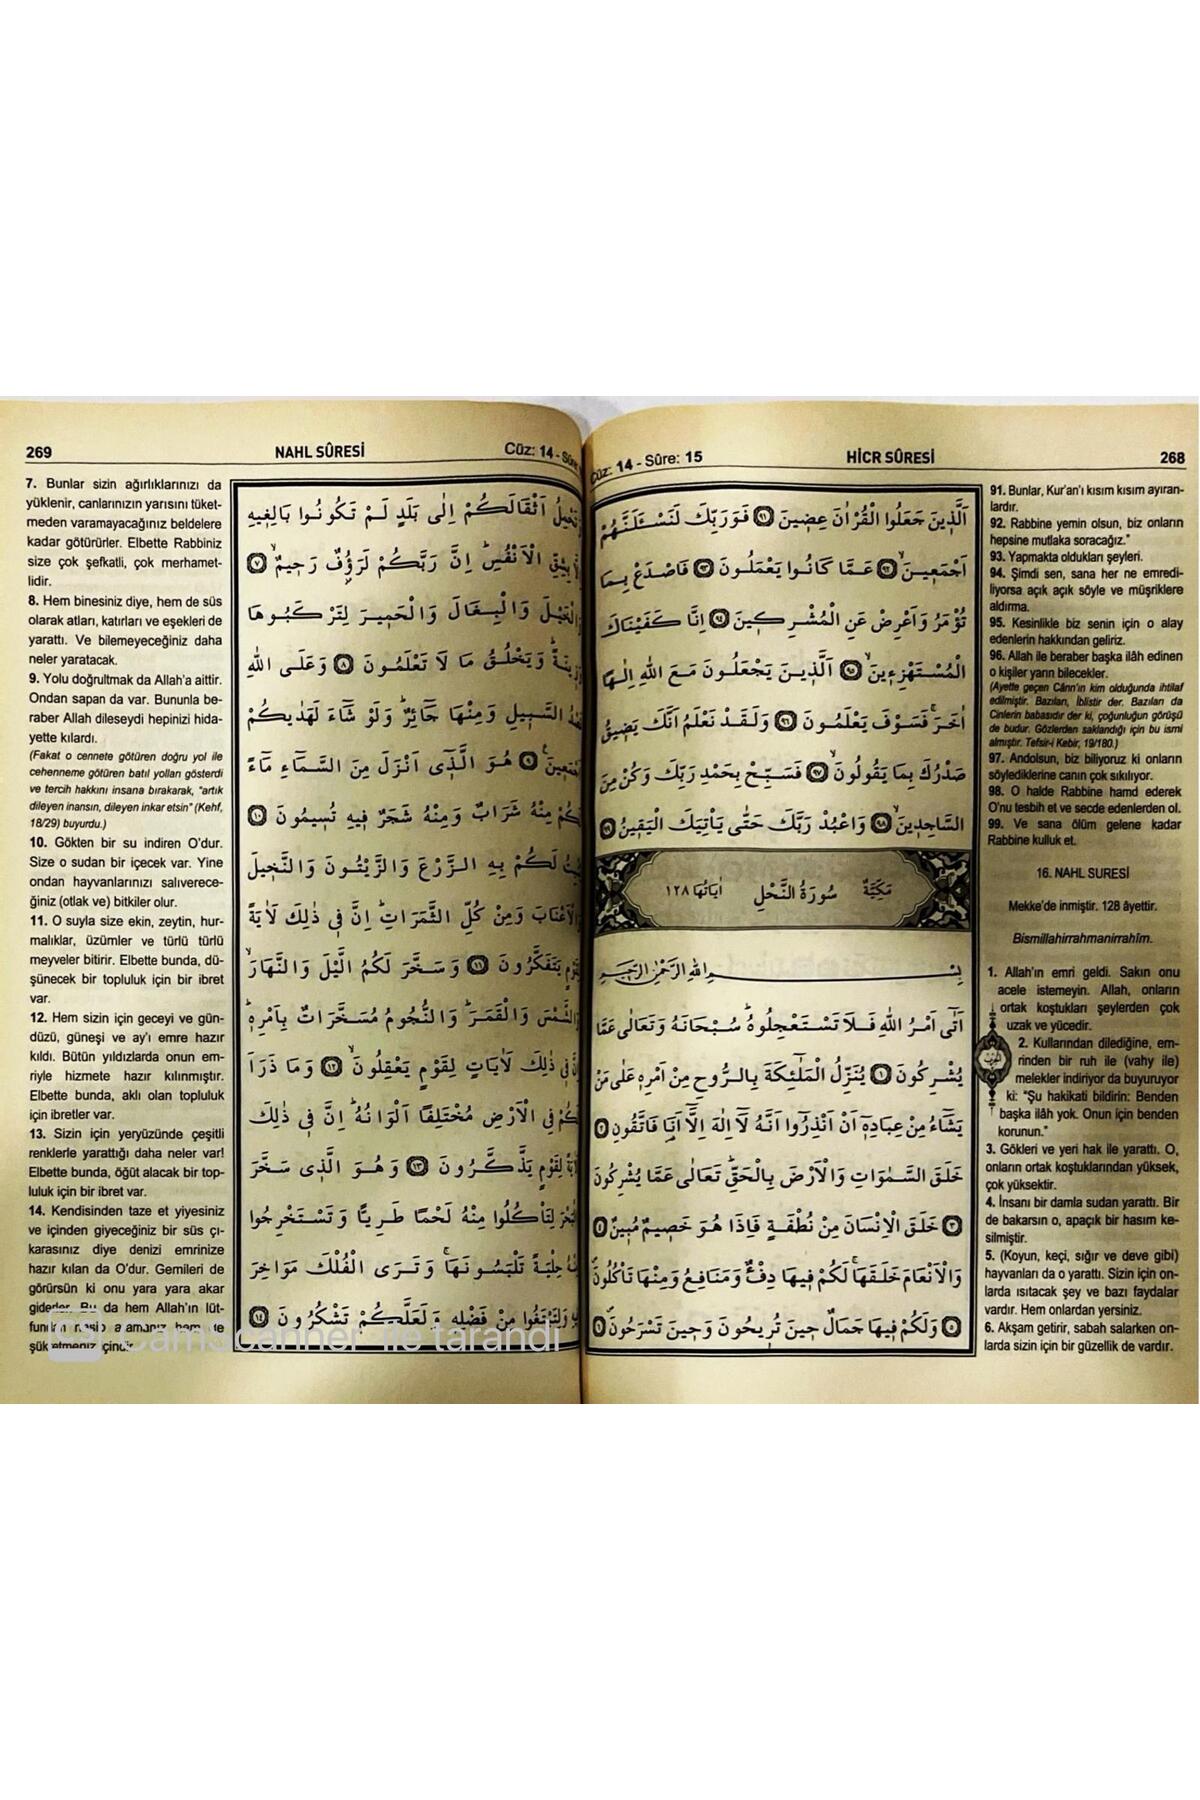 Cüz: 14 - Sûre: 15
HİCR SÛRESİ
268
اَلَّذ۪ينَ جَعَلُوا الْقُرْاٰنَ عِض۪ينَ ﴿٩١﴾ فَوَرَبِّكَ لَنَسْـَٔلَنَّهُمْ
اَجْمَع۪ينَۙ ﴿٩٢﴾ عَمَّا كَانُوا يَعْمَلُونَ ﴿٩٣﴾ فَاصْدَعْ بِمَا
تُؤْمَرُ وَاَعْرِضْ عَنِ الْمُشْرِك۪ينَ ﴿٩٤﴾ اِنَّا كَفَيْنَاكَ
الْمُسْتَهْزِء۪ينَۙ ﴿٩٥﴾ اَلَّذ۪ينَ يَجْعَلُونَ مَعَ اللّٰهِ اِلٰهًا
اٰخَرَۚ فَسَوْفَ يَعْلَمُونَ ﴿٩٦﴾ وَلَقَدْ نَعْلَمُ اَنَّكَ يَض۪يقُ
صَدْرُكَ بِمَا يَقُولُونَۙ ﴿٩٧﴾ فَسَبِّحْ بِحَمْدِ رَبِّكَ وَكُنْ مِنَ
السَّاجِد۪ينَۙ ﴿٩٨﴾ وَاعْبُدْ رَبَّكَ حَتّٰى يَأْتِيَكَ الْيَق۪ينُ ﴿٩٩﴾
مَكِّيَّةٌ سُورَةُ النَّحْلِ اٰيَاتُهَا ١٢٨
بِسْمِ اللّٰهِ الرَّحْمٰنِ الرَّح۪يمِ
اَتٰٓى اَمْرُ اللّٰهِ فَلَا تَسْتَعْجِلُوهُۜ سُبْحَانَهُ وَتَعَالٰى عَمَّا
يُشْرِكُونَ ﴿١﴾ يُنَزِّلُ الْمَلٰٓئِكَةَ بِالرُّوحِ مِنْ اَمْرِه۪ عَلٰى مَنْ
يَشَٓاءُ مِنْ عِبَادِه۪ٓ اَنْ اَنْذِرُٓوا اَنَّهُ لَٓا اِلٰهَ اِلَّٓا اَنَا۬ فَاتَّقُونِ ﴿٢﴾
خَلَقَ السَّمٰوَاتِ وَالْاَرْضَ بِالْحَقِّۜ تَعَالٰى عَمَّا يُشْرِكُونَ
﴿٣﴾ خَلَقَ الْاِنْسَانَ مِنْ نُطْفَةٍ فَاِذَا هُوَ خَص۪يمٌ مُب۪ينٌ ﴿٤﴾
وَالْاَنْعَامَ خَلَقَهَاۚ لَكُمْ ف۪يهَا دِفْءٌ وَمَنَافِعُ وَمِنْهَا تَأْكُلُونَۖ
﴿٥﴾ وَلَكُمْ ف۪يهَا جَمَالٌ ح۪ينَ تُر۪يحُونَ وَح۪ينَ تَسْرَحُونَۖ ﴿٦﴾
91. Bunlar, Kur'an'ı kısım kısım ayıran-
lardır.
92. Rabbine yemin olsun, biz onların
hepsine mutlaka soracağız."
93. Yapmakta oldukları şeyleri.
94. Şimdi sen, sana her ne emredi-
liyorsa açık açık söyle ve müşriklere
aldırma.
95. Kesinlikle biz senin için o alay
edenlerin hakkından geliriz.
96. Allah ile beraber başka ilâh edinen
o kişiler yarın bilecekler.
(Ayette geçen Cânn'ın kim olduğunda ihtilaf
edilmiştir. Bazıları, İblistir der. Bazıları da
Cinlerin babasıdır der ki, çoğunluğun görüşü
de budur. Gözlerden saklandığı için bu ismi
almıştır. Tefsir-i Kebir, 19/180.)
97. Andolsun, biz biliyoruz ki onların
söylediklerine canın çok sıkılıyor.
98. O halde Rabbine hamd ederek
O'nu tesbih et ve secde edenlerden ol.
99. Ve sana ölüm gelene kadar
Rabbine kulluk et.
16. NAHL SURESİ
Mekke'de inmiştir. 128 âyettir.
Bismillahirrahmanirrahîm.
1. Allah'ın emri geldi. Sakın onu
acele istemeyin. Allah, onların
ortak koştukları şeylerden çok
uzak ve yücedir.
2. Kullarından dilediğine, em-
rinden bir ruh ile (vahy ile)
melekler indiriyor da buyuruyor
ki: "Şu hakikati bildirin: Benden
başka ilâh yok. Onun için benden
korunun."
3. Gökleri ve yeri hak ile yarattı. O,
onların ortak koştuklarından yüksek,
çok yüksektir.
4. İnsanı bir damla sudan yarattı. Bir
de bakarsın o, apaçık bir hasım ke-
silmiştir.
5. (Koyun, keçi, sığır ve deve gibi)
hayvanları da o yarattı. Sizin için on-
larda ısıtacak şey ve bazı faydalar
vardır. Hem onlardan yersiniz.
6. Akşam getirir, sabah salarken on-
larda sizin için bir güzellik de vardır.
269
NAHL SÛRESİ
Cüz: 14 - Sûre:
اَثْقَالَكُمْ اِلٰى بَلَدٍ لَمْ تَكُونُوا بَالِغ۪يهِ
الْاَنْفُسِۜ اِنَّ رَبَّكُمْ لَرَؤُ۫فٌ رَح۪يمٌۙ ﴿٧﴾
وَالْبِغَالَ وَالْحَم۪يرَ لِتَرْكَبُوهَا
وَيَخْلُقُ مَا لَا تَعْلَمُونَ ﴿٨﴾ وَعَلَى اللّٰهِ
السَّب۪يلِ وَمِنْهَا جَٓائِرٌۜ وَلَوْ شَٓاءَ لَهَدٰيكُمْ
﴿٩﴾ هُوَ الَّذ۪ٓي اَنْزَلَ مِنَ السَّمَٓاءِ مَٓاءً
مِنْهُ شَرَابٌ وَمِنْهُ شَجَرٌ ف۪يهِ تُس۪يمُونَ ﴿١٠﴾
لَكُمْ بِهِ الزَّرْعَ وَالزَّيْتُونَ وَالنَّخ۪يلَ
وَمِنْ كُلِّ الثَّمَرَاتِۜ اِنَّ ف۪ي ذٰلِكَ لَاٰيَةً
يَتَفَكَّرُونَ ﴿١١﴾ وَسَخَّرَ لَكُمُ الَّيْلَ وَالنَّهَارَۙ
وَالْقَمَرَۜ وَالنُّجُومُ مُسَخَّرَاتٌ بِاَمْرِه۪ۜ
ف۪ي ذٰلِكَ لَاٰيَاتٍ لِقَوْمٍ يَعْقِلُونَۙ ﴿١٢﴾ وَمَا ذَرَاَ
فِي الْاَرْضِ مُخْتَلِفًا اَلْوَانُهُۜ اِنَّ ف۪ي ذٰلِكَ
لِقَوْمٍ يَذَّكَّرُونَ ﴿١٣﴾ وَهُوَ الَّذ۪ي سَخَّرَ
لِتَأْكُلُوا مِنْهُ لَحْمًا طَرِيًّا وَتَسْتَخْرِجُوا
حِلْيَةً تَلْبَسُونَهَاۚ وَتَرَى الْفُلْكَ مَوَاخِرَ
وَلِتَبْتَغُوا مِنْ فَضْلِه۪ وَلَعَلَّكُمْ تَشْكُرُونَ ﴿١٤﴾
7. Bunlar sizin ağırlıklarınızı da
yüklenir, canlarınızın yarısını tüket-
meden varamayacağınız beldelere
kadar götürürler. Elbette Rabbiniz
size çok şefkatli, çok merhamet-
lidir.
8. Hem binesiniz diye, hem de süs
olarak atları, katırları ve eşekleri de
yarattı. Ve bilemeyeceğiniz daha
neler yaratacak.
9. Yolu doğrultmak da Allah'a aittir.
Ondan sapan da var. Bununla be-
raber Allah dileseydi hepinizi hida-
yette kılardı.
(Fakat o cennete götüren doğru yol ile
cehenneme götüren batıl yolları gösterdi
ve tercih hakkını insana bırakarak, "artık
dileyen inansın, dileyen inkar etsin" (Kehf,
18/29) buyurdu.)
10. Gökten bir su indiren O'dur.
Size o sudan bir içecek var. Yine
ondan hayvanlarınızı salıverece-
ğiniz (otlak ve) bitkiler olur.
11. O suyla size ekin, zeytin, hur-
malıklar, üzümler ve türlü türlü
meyveler bitirir. Elbette bunda, dü-
şünecek bir topluluk için bir ibret
var.
12. Hem sizin için geceyi ve gün-
düzü, güneşi ve ay'ı emre hazır
kıldı. Bütün yıldızlarda onun em-
riyle hizmete hazır kılınmıştır.
Elbette bunda, aklı olan topluluk
için ibretler var.
13. Sizin için yeryüzünde çeşitli
renklerle yarattığı daha neler var!
Elbette bunda, öğüt alacak bir top-
luluk için bir ibret var.
14. Kendisinden taze et yiyesiniz
ve içinden giyeceğiniz bir süs çı-
karasınız diye denizi emrinize
hazır kılan da O'dur. Gemileri de
görürsün ki onu yara yara akar
gider. Bu da hem Allah'ın lüt-
fundan nasip aramanız hem de
şükretmeniz içindir.
CS CamScanner ile tarandı